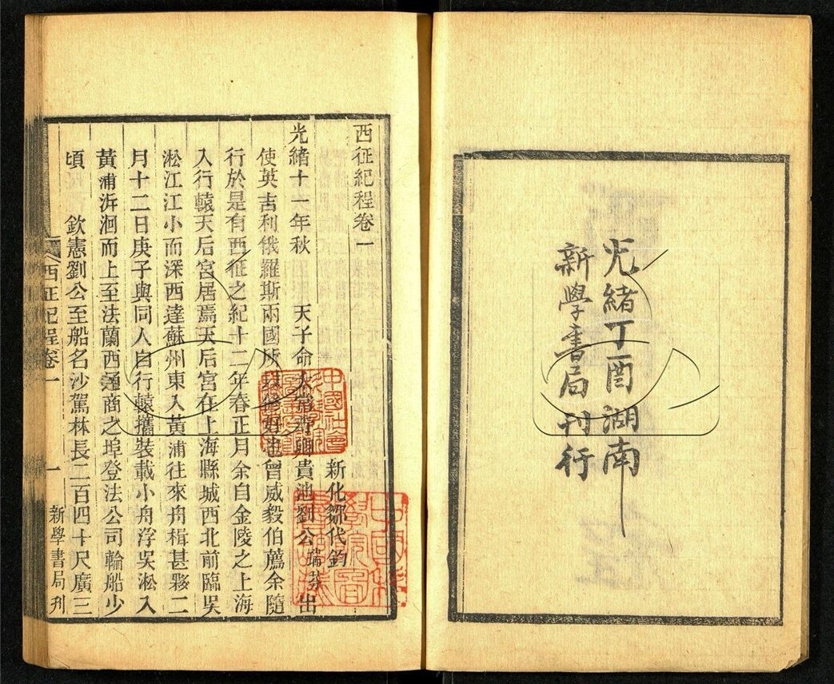 光緒丁酉湖南
新學書局刊行
西征紀程卷一
新化鄒代鈞
光緒十一年秋 天子命太常寺卿貴池劉公瑞芬出
使英吉利俄羅斯兩國所以修好也曾威毅伯薦余隨
行於是有西征之紀十二年春正月余自金陵之上海
入行轅天后宮居焉天后宮在上海縣城西北前臨吳
淞江江小而深西達蘇州東入黃浦往來舟楫甚夥二
月十二日庚子與同人自行轅攜裝載小舟浮吳淞入
黃浦泝洄而上至法蘭西通商之埠登法公司輪船少
頃 欽憲劉公至船名沙駕林長二百四十尺廣三
西征紀程卷一 一 新學書局刊